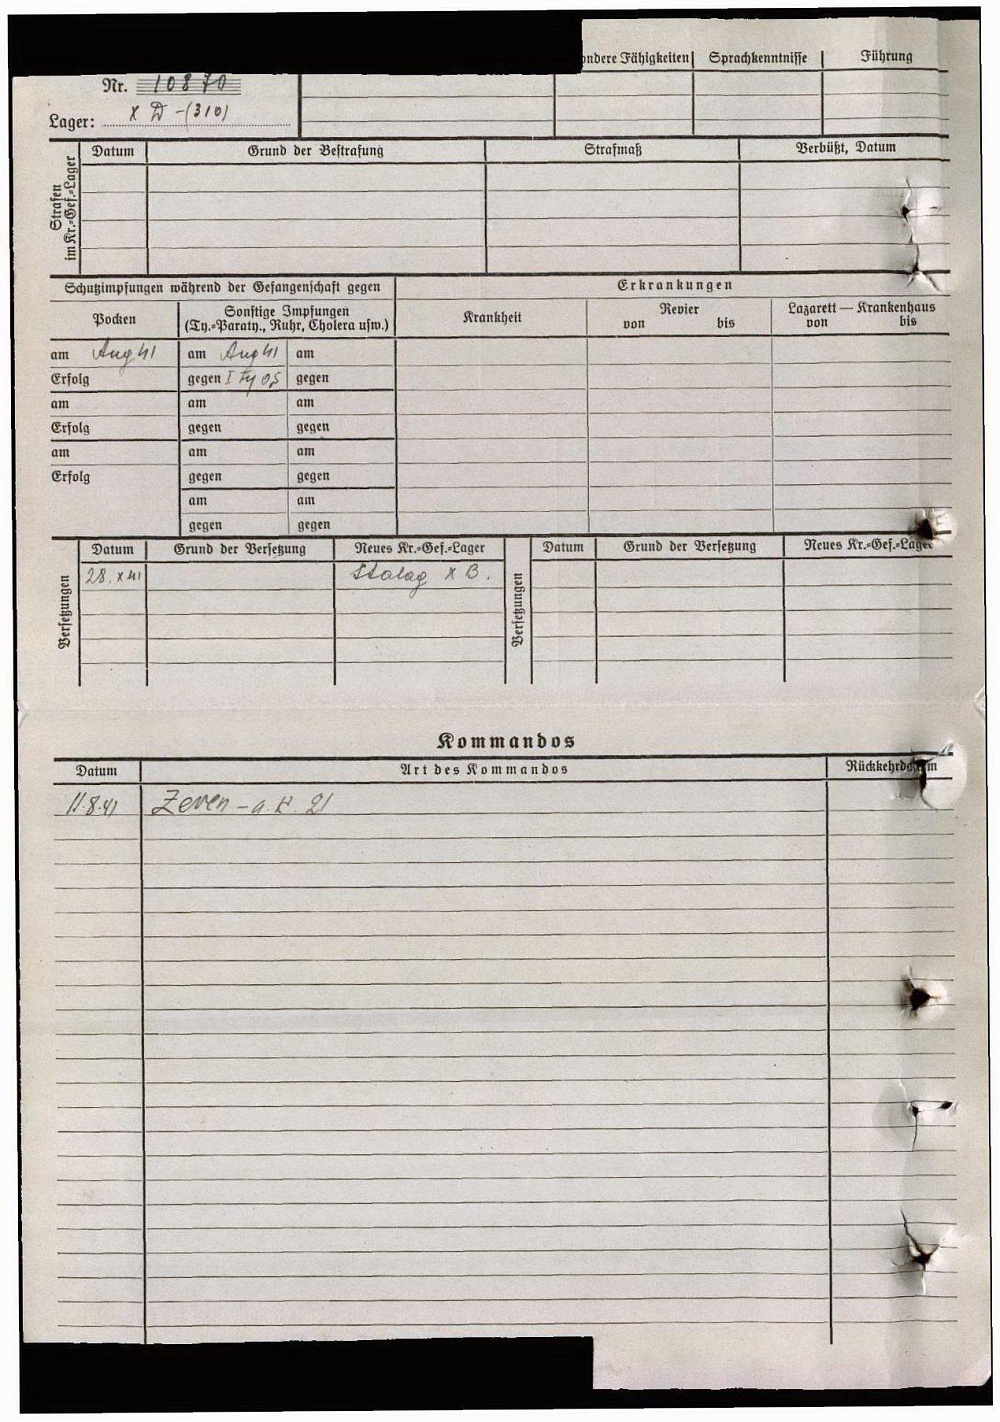 ondere Fähigkeiten Sprachkenntnisse Führung
Nr. 10870
Lager: X D - (310)
Strafen im Kr.=Gef.=Lager
Datum Grund der Bestrafung Strafmaß Verbüßt, Datum
Schutzimpfungen während der Gefangenschaft gegen
Erkrankungen
Pocken
Sonstige Impfungen
(Ty.=Paraty., Ruhr, Cholera usw.)
Krankheit
Revier
von bis
Lazarett — Krankenhaus
von bis
am Aug 41 am Aug 41 am
Erfolg gegen gegen
am am am
Erfolg gegen gegen
am am am
Erfolg gegen gegen
am am
gegen gegen
Versetzungen
Datum Grund der Versetzung Neues Kr.=Gef.=Lager
28. X 41 Stalag X B.
Versetzungen
Datum Grund der Versetzung Neues Kr.=Gef.=Lager
Kommandos
Datum Art des Kommandos
11.8.41 Zeven - a. K. 21